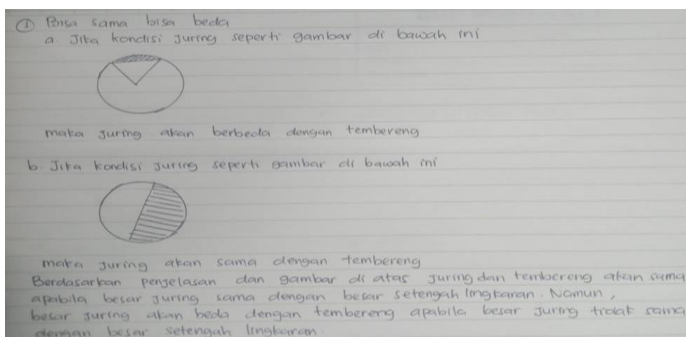 ① Bisa sama bisa beda
a. Jika kondisi juring seperti gambar di bawah ini
maka juring akan berbeda dengan tembereng
b. Jika kondisi juring seperti gambar di bawah ini
maka juring akan sama dengan tembereng
Berdasarkan penjelasan dan gambar di atas juring dan tembereng akan sama
apabila besar juring sama dengan besar setengah lingkaran. Namun,
besar juring akan beda dengan tembereng apabila besar juring tidak sama
dengan besar setengah lingkaran.